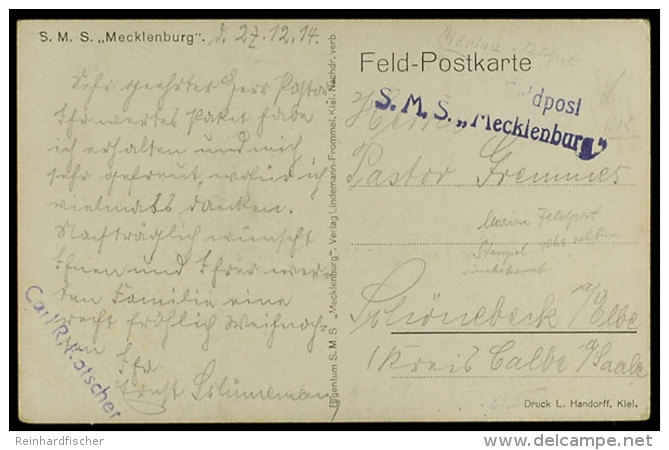 S. M. S. „Mecklenburg". d. 27.12.14.
Sehr geehrter Herr Pastor
Ihr wertes Paket habe
ich erhalten und mich
sehr gefreut, wofür ich
vielmals danken.
Nachträglich wünscht
Ihnen und Ihrer wer-
den Familie eine
recht fröhlich Weihnach-
ten
Ernst
Carl R.
Eigentum S. M. S „Mecklenburg". Verlag Lindemann-Frommel, Kiel. Nachdr. verb.
Marine-Feldpost
Feld-Postkarte
Feldpost
S. M. S. „Mecklenburg"
Herrn
Pastor Gremmes
Marine Feldpost
Stempel sehr selten
unbekannt
Schönebeck a/Elbe
Kreis Calbe a/Saale
Druck L. Handorff, Kiel.
Reinhardfischer
delcampe.net